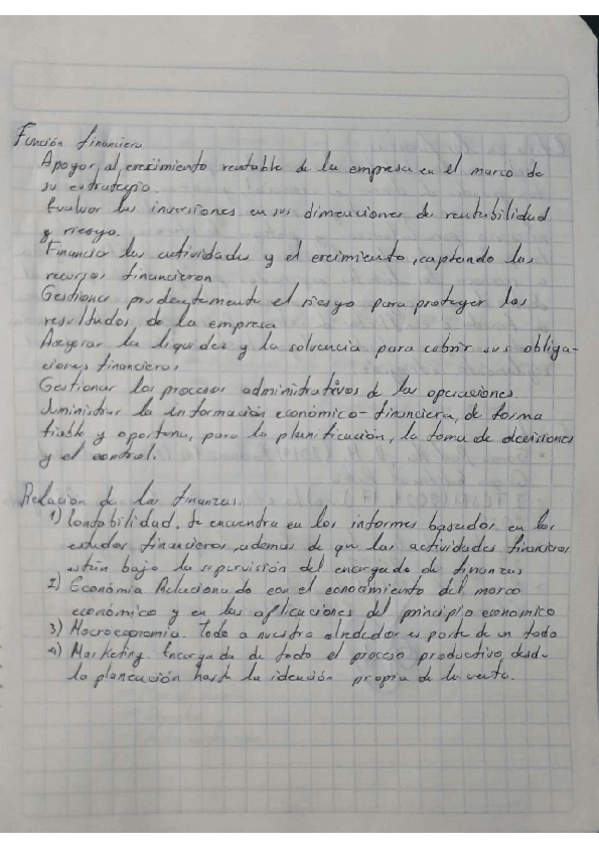 Función financiera
Apoyar al crecimiento rentable de la empresa en el marco de
su estrategia.
Evaluar las inversiones en sus dimenciones de rentabilidad
y riesgo.
Financiar las actividades y el crecimiento, captando los
recursos financieron
Gestionar prudentemente el riesgo para proteger los
resultados de la empresa
Asegurar la liquidez y la solvencia para cubrir sus obliga-
ciones financieras
Gestionar los procesos administrativos de las operaciones.
Suministrar la información económico-financiera, de forma
fiable y oportuna, para la planificación, la toma de decisiones
y el control.
Relación de las finanzas.
1) Contabilidad. Se encuentra en los informes basados en los
estados financieros, ademas de que las actividades financieras
están bajo la supervisión del encargado de finanzas
2) Económia Relacionado con el conocimiento del marco
económico y en las aplicaciones del principio economico
3) Macroeconomia. Todo a nuestro alrededor es parte de un todo
4) Marketing. Encargada de todo el proceso productivo, desde
la planeación hasta la ideación propia de la venta.